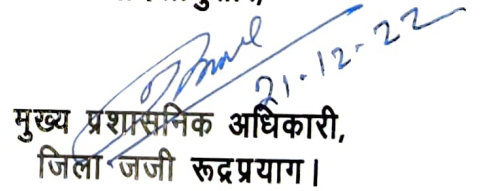 21.12.22
मुख्य प्रशासनिक अधिकारी,
जिला जजी रूद्रप्रयाग।